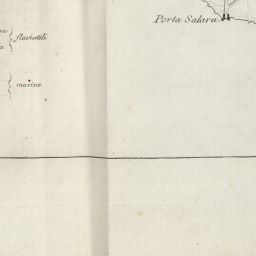 Porta Salara
fluviatili
marine